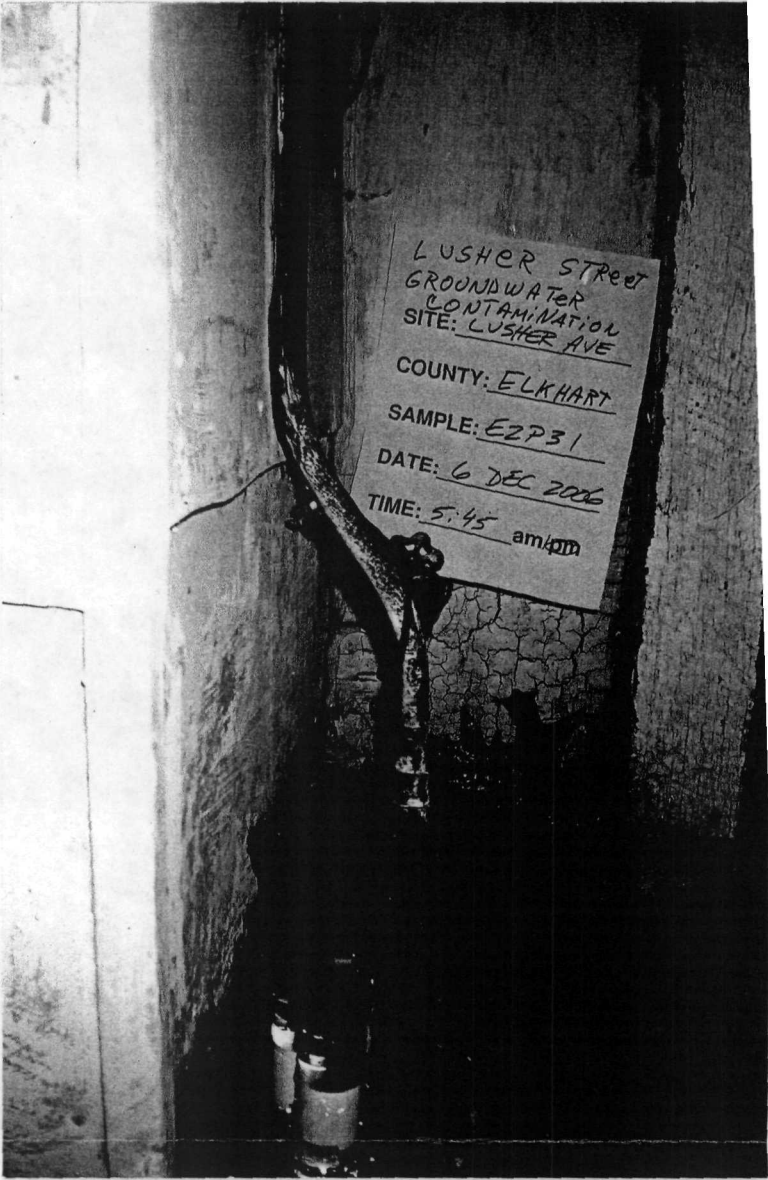 LUSHER STReeT
GROUNDWATeR
CONTAMiNATiON
SITE: LUSHER AVE
COUNTY: ELKHART
SAMPLE: EZP31
DATE: 6 DEC 2006
TIME: 5:45 am/pm